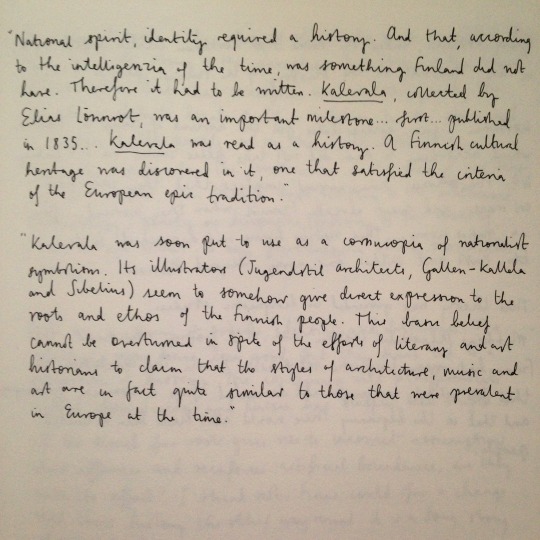 "National spirit, identity required a history. And that, according
to the intelligenzia of the time, was something Finland did not
have. Therefore it had to be written. Kalevala, collected by
Elias Lönnrot, was an important milestone... first... published
in 1835... Kalevala was read as a history. A Finnish cultural
heritage was discovered in it, one that satisfied the criteria
of the European epic tradition."
"Kalevala was soon put to use as a cornucopia of nationalist
symbolism. Its illustrators (Jugendstil architects, Gallen-Kallela
and Sibelius) seem to somehow give direct expression to the
roots and ethos of the Finnish people. This basic belief
cannot be overturned in spite of the efforts of literary and art
historians to claim that the styles of architecture, music and
art are in fact quite similar to those that were prevalent
in Europe at the time."